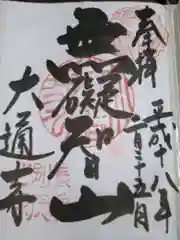 奉拝
平成十八年
月二十五日
無礙智山
大通寺